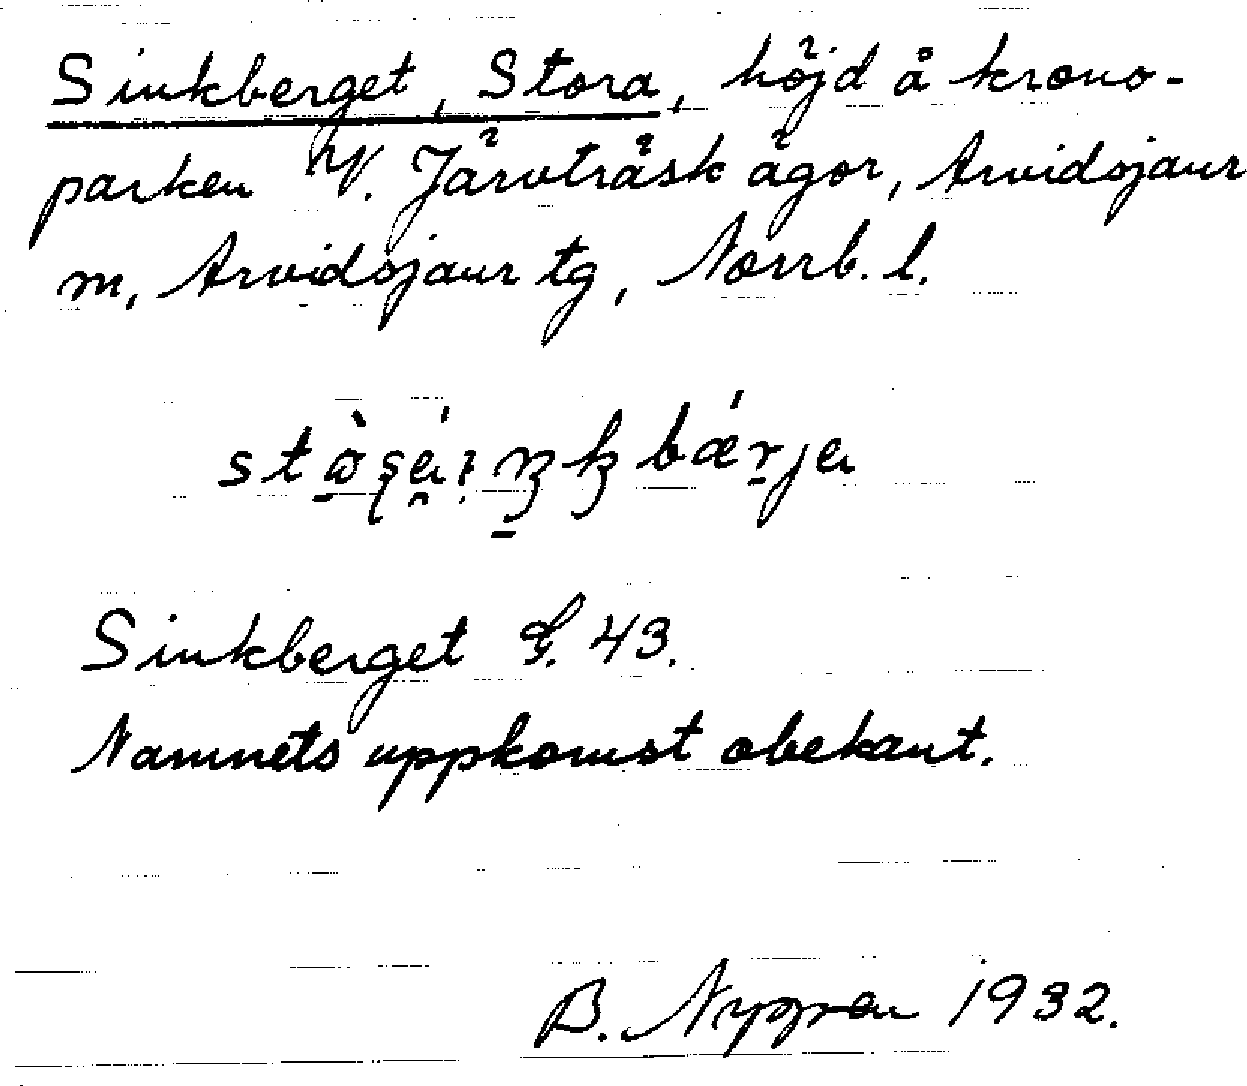 Sinkberget, Stora, höjd å krono-
parken V. Järvträsk ägor, Arvidsjaur
m, Arvidsjaur tg, Norrb. l.
Sinkberget G. 43.
Namnets uppkomst obekant.
B. Nygren 1932.